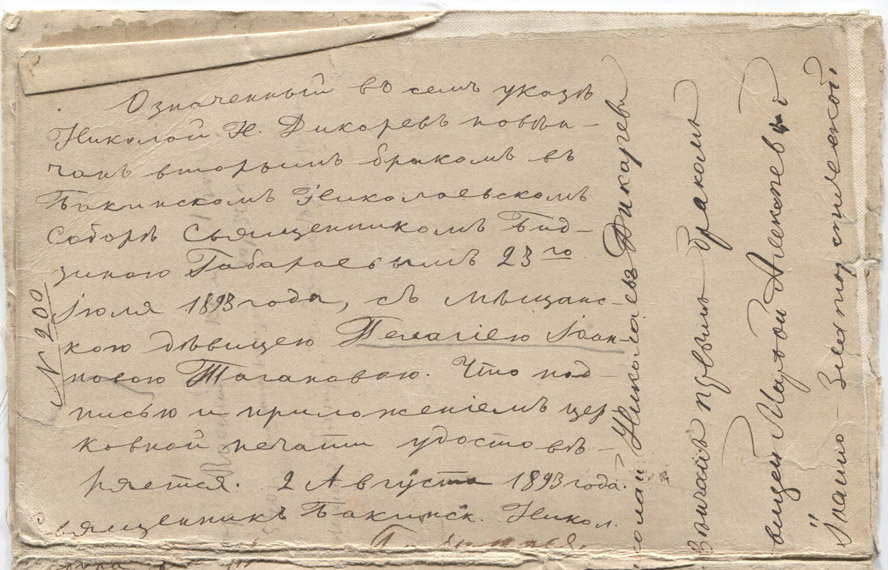 Означенный въ семъ указѣ
Николай Н. Дикаревъ повѣн-
чанъ вторымъ бракомъ въ
Бакинскомъ Николаевскомъ
Соборѣ Священникомъ Бид-
зиною Габараевымъ 23го
Іюля 1893 года, съ мѣщанс-
кою дѣвицею Пелагіею Іоан-
новою Тагановою. Что под-
писью и приложеніемъ цер-
ковной печати удостовѣ-
ряется. 2 Августа 1893 года.
вященникъ Бакинск. Никол.
№ 200
колай Николаевъ Дикаревъ
Вѣнчанъ первымъ бракомъ
вицей Марѳой Алексеевной
Іоанно- Златоустовской